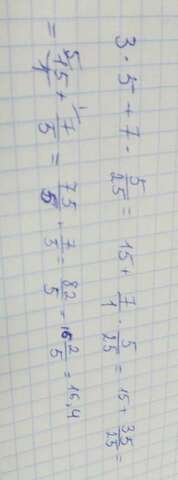 3 · 5 + 7 · 5/25 = 15 + 7/1 · 5/25 = 15 + 35/25 =
= 15/1 + 7/5 = 75/5 + 7/5 = 82/5 = 16 2/5 = 16,4